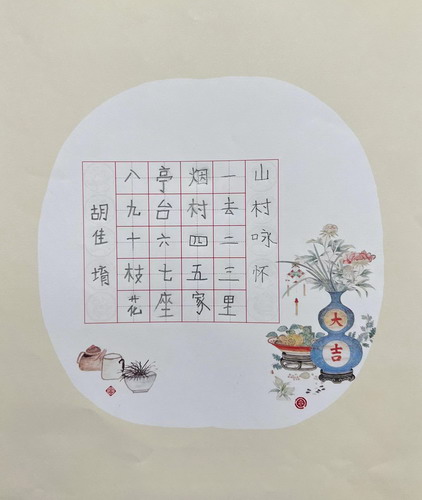 山村咏怀
一去二三里
烟村四五家
亭台六七座
八九十枝花
胡佳堉
大吉